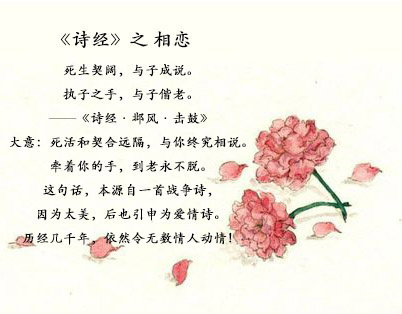 《诗经》之 相恋
死生契阔，与子成说。
执子之手，与子偕老。
——《诗经·邶风·击鼓》
大意：死活和契合远隔，与你终究相说。
牵着你的手，到老永不脱。
这句话，本源自一首战争诗，
因为太美，后也引申为爱情诗。
历经几千年，依然令无数情人动情！